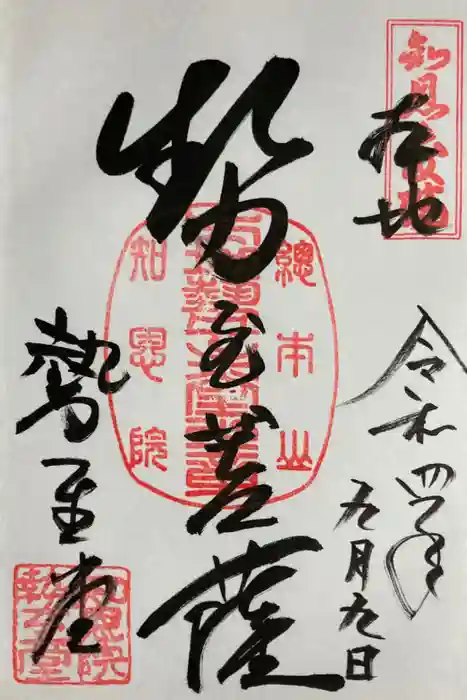 勢至菩薩
總本山
知恩院
令和四年
九月九日
勢至堂
知恩院
勢至堂